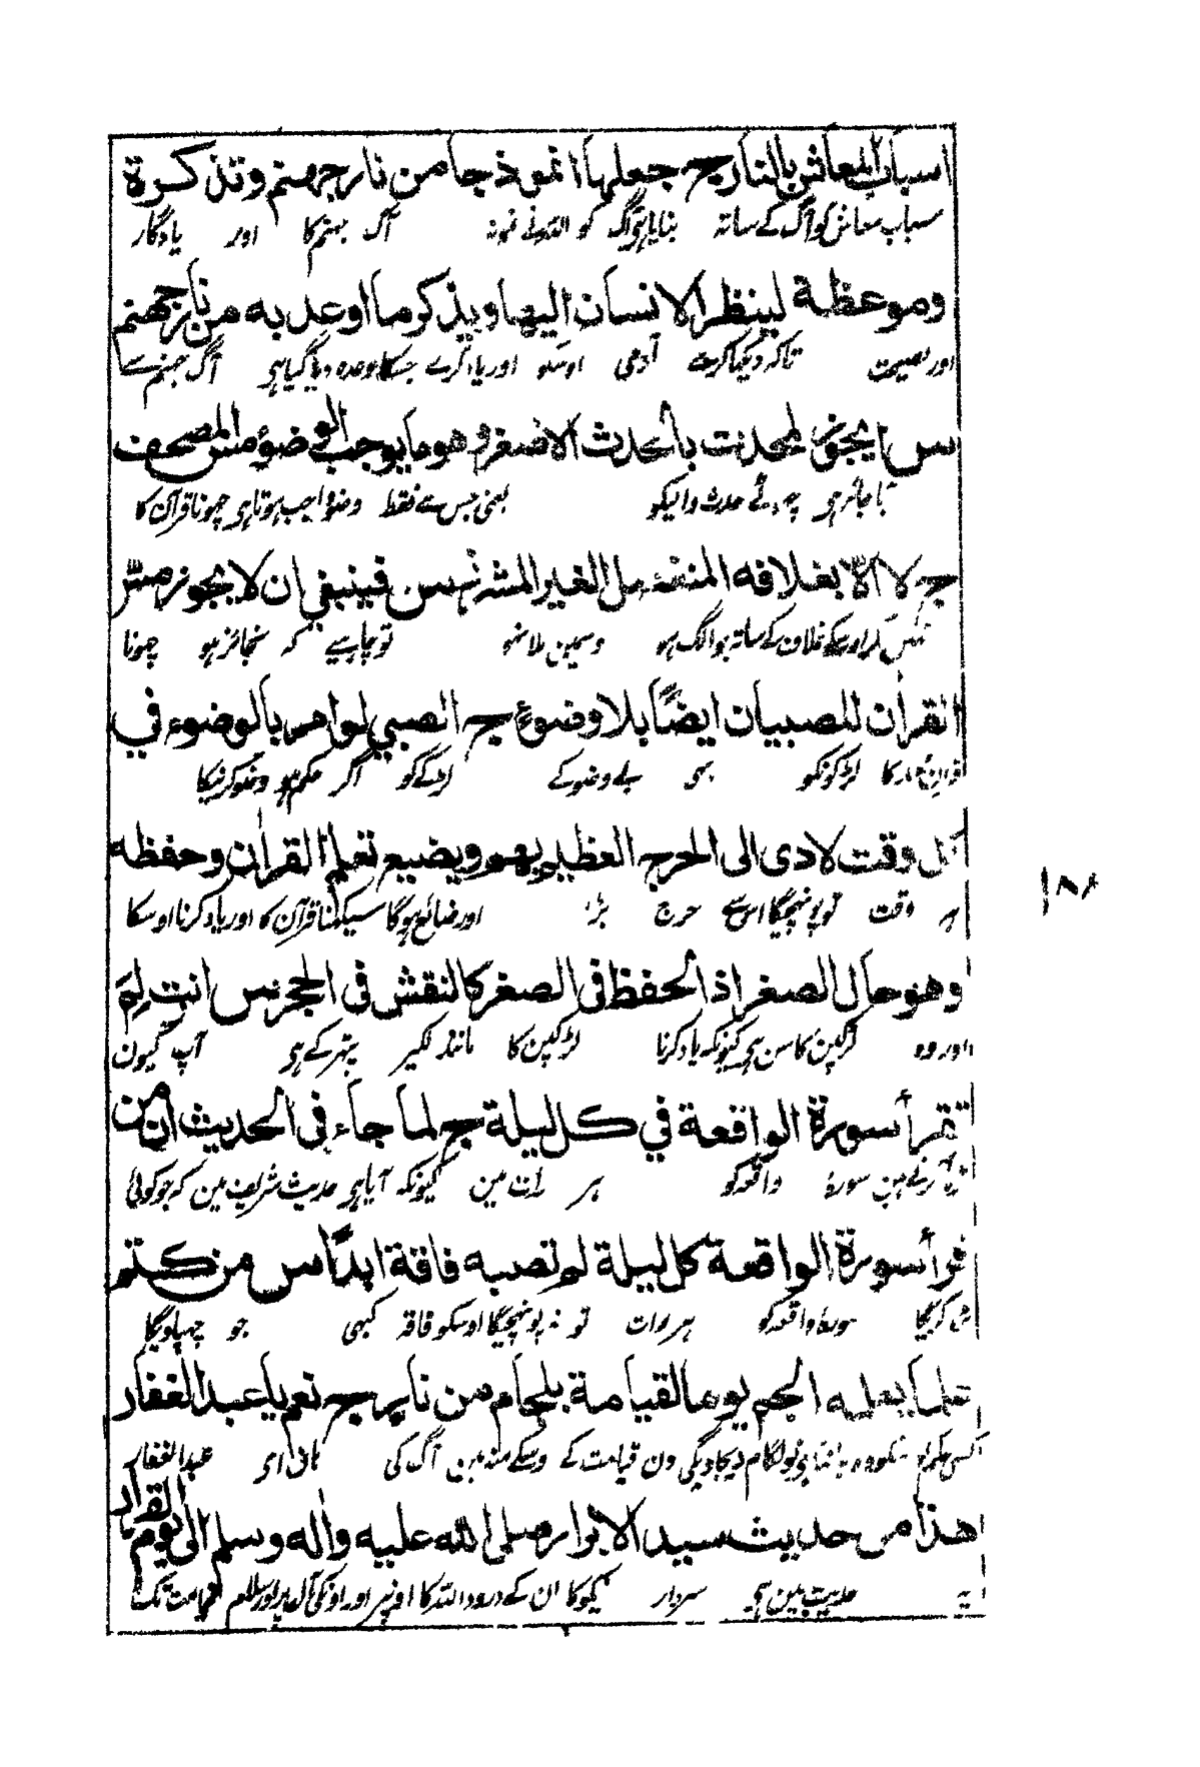 اسباب المعاش بالنار ج جعلها انموذجا من نار جهنم وتذكرة
سباب معاش کو آگ کے ساتہ بنایا ہی آگ کو اللہ نے نمونہ آگ جہنم کا اور یادگار
وموعظة لينظر الانسان اليها ويذكر ما اوعد به من نار جهنم
اور نصیحت تاکہ دیکہا کرے آدمی اوسکو اور یاد کرے جسکا وعدہ دیا گیا ہی آگ جہنم سے
س ايجوز لمحدث بالحدث الاصغر وهو ما يوجب الوضوء مس المصحف
کیا جائز ہی چہوٹے حدث والیکو یعنی جس سے فقط وضو واجب ہوتا ہی چہونا قرآن کا
ج لا الا بغلافه المنفصل الغير المشرز س فينبغي ان لا يجوز مس
نہیں مگر اوسکے غلاف کے ساتہ جو الگ ہو توچاہیے کہ نجائز ہو چہونا
القران للصبيان ايضًا بلا وضوء ج الصبي لو امر بالوضوء في
لڑکونکو بہی بے وضو کے لڑکے کو اگر حکم ہو وضو کرنیکا
كل وقت لادى الى الحرج العظيم بهم ويضيع تعلم القران وحفظه
ہر وقت تو پونہچیگا اس سے حرج بڑا اور ضائع ہوگا سیکہنا قرآن کا اور یاد کرنا اوسکا
وهو حال الصغر اذ الحفظ فى الصغر كالنقش فى الحجر س انت لِمَ
اور وہ لڑکپن کا سن ہی کیونکہ یاد کرنا لڑکپن کا مانند لکیر پتہر کے ہی آپ کیون
تقرأ سورة الواقعة في كل ليلة ج لما جاء فى الحديث ان من
پڑہا کرتے ہین سورۂ واقعہ کو ہر رات مین کیونکہ آیا ہی حدیث شریف مین کہ جو کوئی
قرأ سورة الواقعة كل ليلة لم تصبه فاقة ابدًا س من كتم
سورۂ واقعہ کو ہر رات تو نہ پونہچیگا اوسکو فاقہ کبہی جو چہپاویگا
علما يعلمه الجم يوم القيامة بلجام من نار ج نعم يا عبد الغفار
لگام دیجاویگی دن قیامت کے اوسکے منہ مین آگ کی ہان ای عبدالغفار
هذا من حديث سيد الابرار صلى الله عليه واله وسلم الى يوم القرار
یہ حدیث مین ہی سردار نیکوکاران کے درود اللہ کا اونپر اور اونکی آل پر اور سلام قیامت تک
۱۸۶